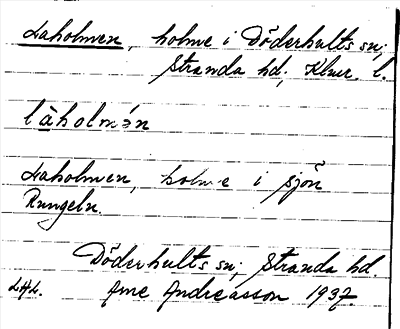 Laholmen, holme i Döderhults sn;
Stranda hd; Klmr. l.
låholmən
Laholmen, holme i sjön
Rungeln.
Döderhults sn; Stranda hd.
Arne Andreasson 1937.